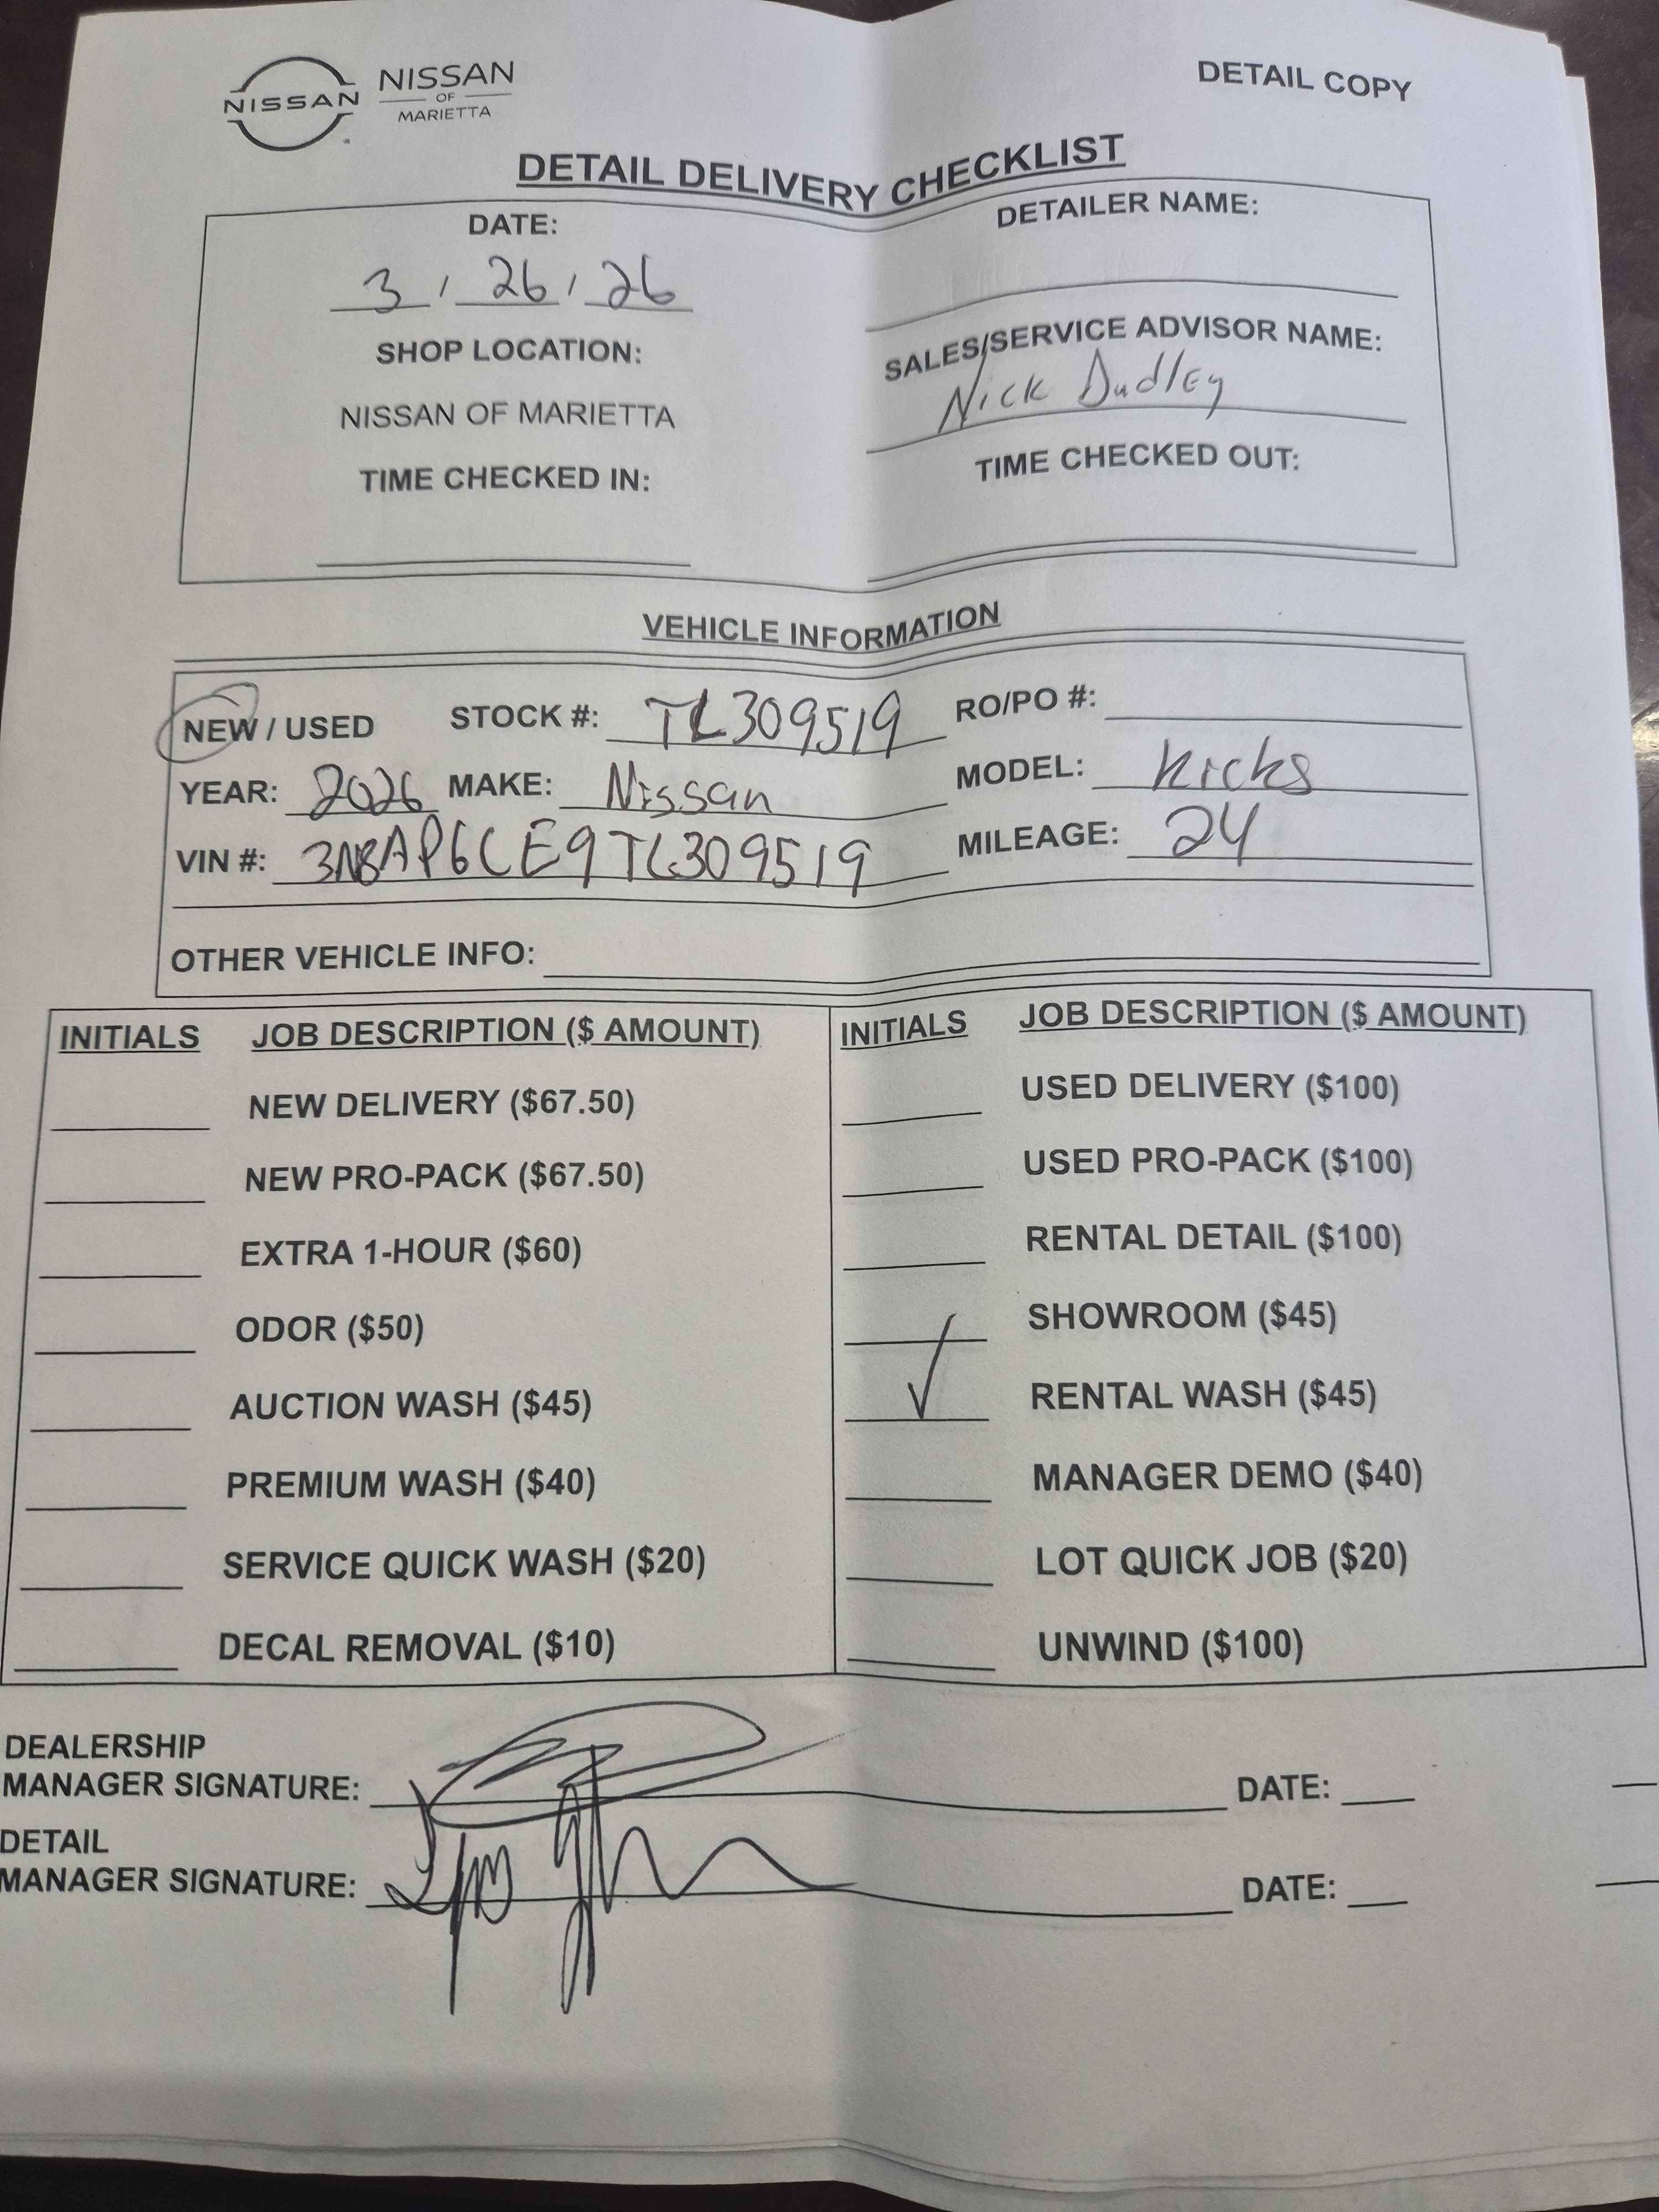 NISSAN
NISSAN
OF
MARIETTA
DETAIL COPY
DETAIL DELIVERY CHECKLIST
DATE:
3 / 26 / 26
DETAILER NAME:
SHOP LOCATION:
NISSAN OF MARIETTA
SALES/SERVICE ADVISOR NAME:
Nick Dudley
TIME CHECKED IN:
TIME CHECKED OUT:
VEHICLE INFORMATION
NEW / USED STOCK #: TL309519 RO/PO #:
YEAR: 2026 MAKE: Nissan MODEL: Kicks
VIN #: 3N8AP6CE9TL309519 MILEAGE: 24
OTHER VEHICLE INFO:
INITIALS JOB DESCRIPTION ($ AMOUNT) INITIALS JOB DESCRIPTION ($ AMOUNT)
NEW DELIVERY ($67.50) USED DELIVERY ($100)
NEW PRO-PACK ($67.50) USED PRO-PACK ($100)
EXTRA 1-HOUR ($60) RENTAL DETAIL ($100)
ODOR ($50) SHOWROOM ($45)
AUCTION WASH ($45) ✓ RENTAL WASH ($45)
PREMIUM WASH ($40) MANAGER DEMO ($40)
SERVICE QUICK WASH ($20) LOT QUICK JOB ($20)
DECAL REMOVAL ($10) UNWIND ($100)
DEALERSHIP
MANAGER SIGNATURE: DATE:
DETAIL
MANAGER SIGNATURE: DATE: